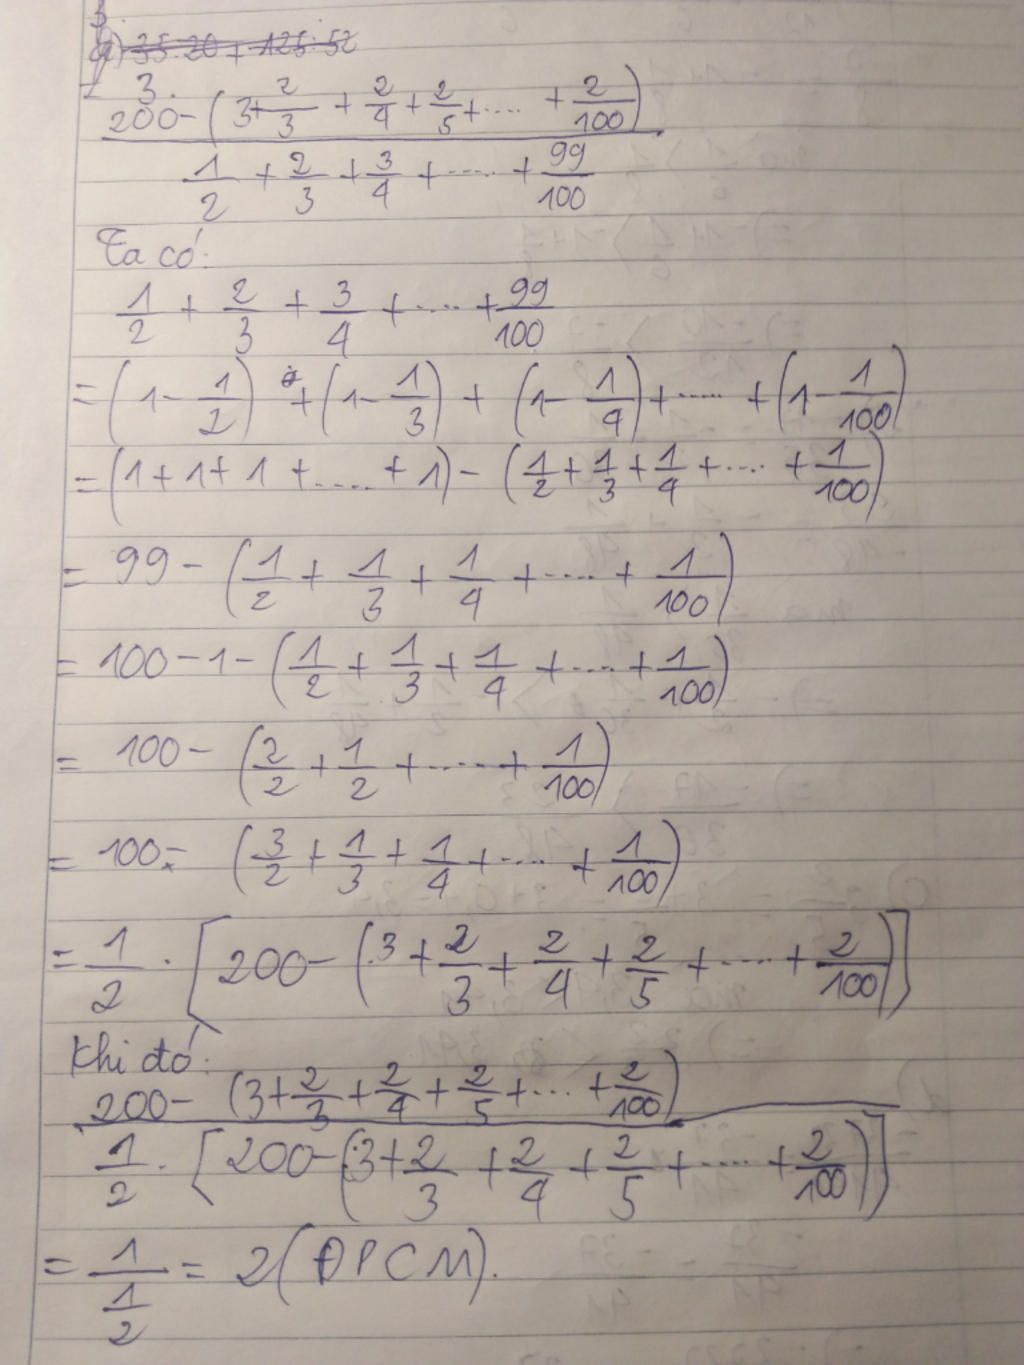 3
a) 35.20 + 125:52
3.
200 - (3 + 2/3 + 2/4 + 2/5 + .... + 2/100)
1/2 + 2/3 + 3/4 + ..... + 99/100
Ta có:
1/2 + 2/3 + 3/4 + ..... + 99/100
= (1 - 1/2) + (1 - 1/3) + (1 - 1/4) + ..... + (1 - 1/100)
= (1 + 1 + 1 + ..... + 1) - (1/2 + 1/3 + 1/4 + .... + 1/100)
= 99 - (1/2 + 1/3 + 1/4 + ..... + 1/100)
= 100 - 1 - (1/2 + 1/3 + 1/4 + ..... + 1/100)
= 100 - (2/2 + 1/2 + ..... + 1/100)
= 100 - (3/2 + 1/3 + 1/4 + ..... + 1/100)
= 1/2 . [200 - (3 + 2/3 + 2/4 + 2/5 + ..... + 2/100)]
Khi đó:
200 - (3 + 2/3 + 2/4 + 2/5 + ... + 2/100)
1/2 . [200 - (3 + 2/3 + 2/4 + 2/5 + ..... + 2/100)]
= 1/(1/2) = 2 (ĐPCM).